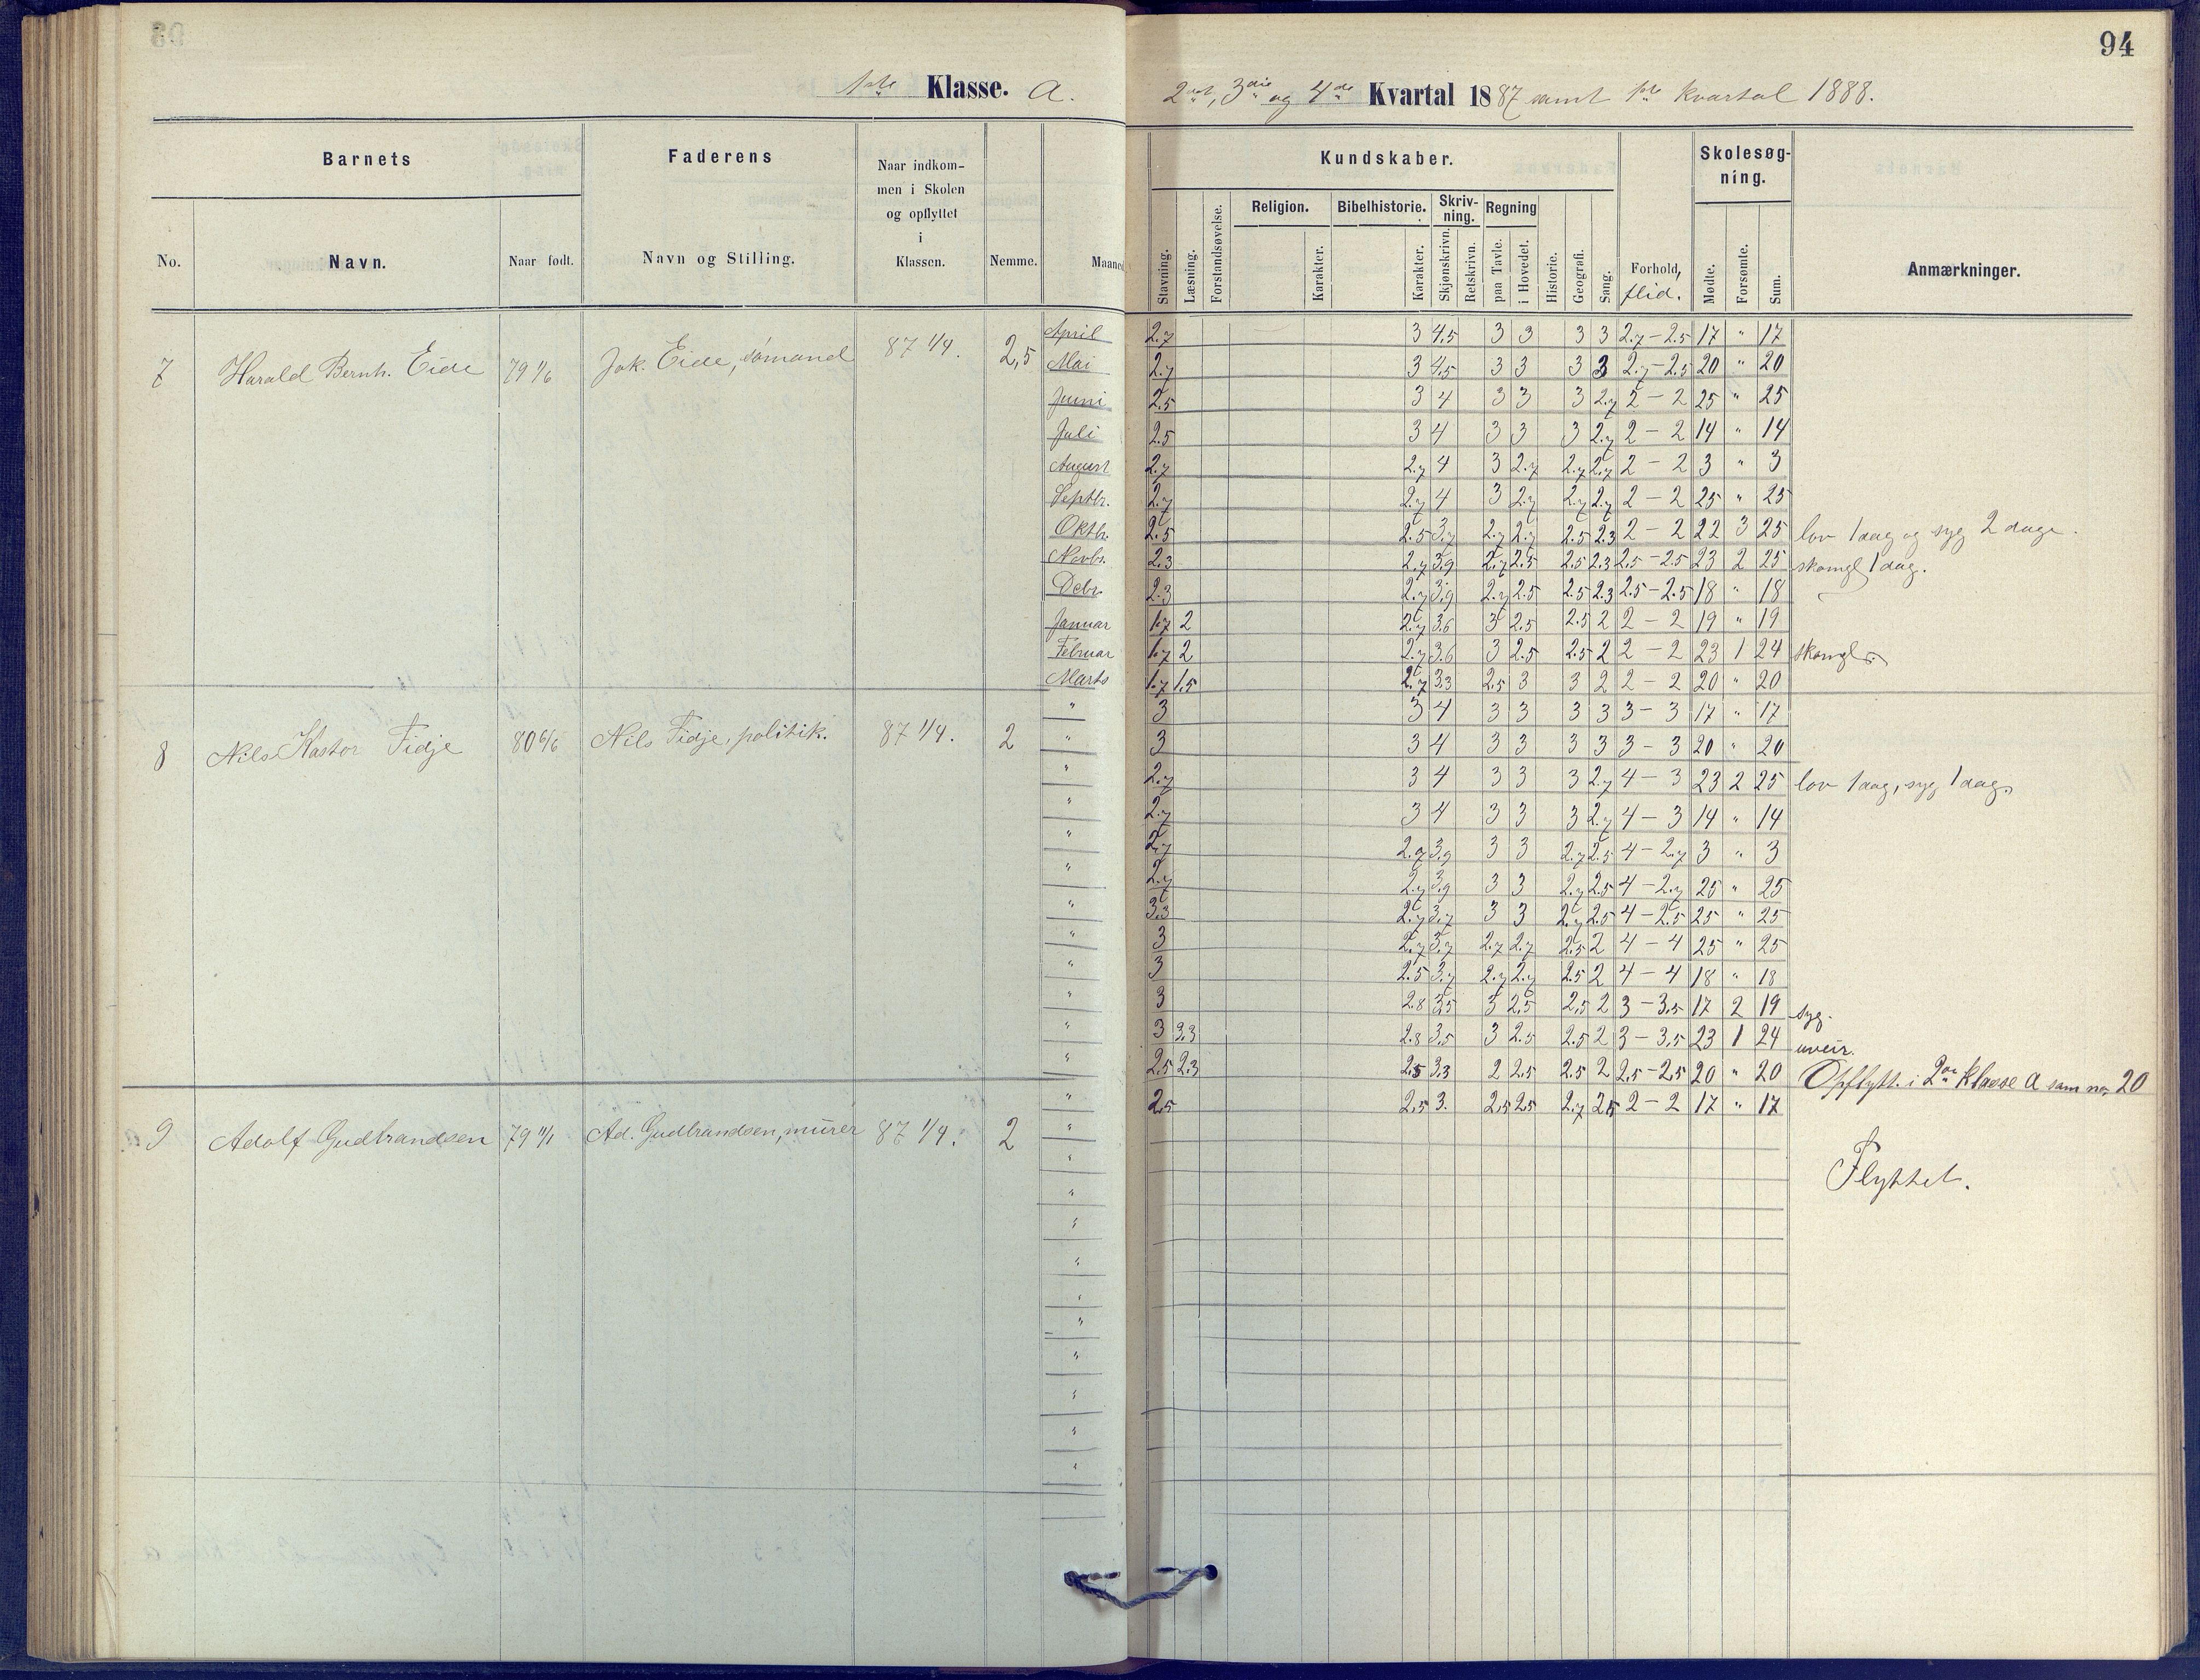 94
1ste Klasse. a.
2det, 3die og 4de Kvartal 1887 samt 1ste kvartal 1888.
Barnets
Faderens
Naar indkom-
men i Skolen
og opflyttet
i
Klassen.
No.
Navn.
Naar født.
Navn og Stilling.
Nemme.
Maaned
Kundskaber.
Skolesøg-
ning.
Stavning.
Læsning.
Forstandsøvelse.
Religion.
Karakter.
Bibelhistorie.
Karakter.
Skriv-
ning.
Skjønskrivn.
Retskrivn.
Regning
paa Tavle.
i Hovedet.
Historie.
Geografi.
Sang.
Forhold,
flid.
Mødte.
Forsømte.
Sum.
Anmærkninger.
7 Harald Bernh. Eide 79 1/6 Jak. Eide, sømand 87 1/4. 2,5
April 2.7 3 4.5 3 3 3 3 2.7-2.5 17 " 17
Mai 2.7 3 4.5 3 3 3 3 2.7-2.5 20 " 20
Juni 2.5 3 4 3 3 3 2.7 2-2 25 " 25
Juli 2.5 3 4 3 3 3 2.7 2-2 14 " 14
August 2.7 2.7 4 3 2.7 2.7 2.7 2-2 3 " 3
Septbr. 2.7 2.7 4 3 2.7 2.7 2.7 2-2 25 " 25
Oktbr. 2.5 2.5 3.7 2.7 2.7 2.5 2.3 2-2 22 3 25 lov 1 dag og syg 2 dage.
Novbr. 2.3 2.7 3.9 2.7 2.5 2.5 2.3 2.5-2.5 23 2 25 skomgl 1 dag.
Debr. 2.3 2.7 3.9 2.7 2.5 2.5 2.3 2.5-2.5 18 " 18
Januar 1.7 2 2.7 3.6 3 2.5 2.5 2 2-2 19 " 19
Februar 1.7 2 2.7 3.6 3 2.5 2.5 2 2-2 23 1 24 skomgl.
Marts 1.7 1.5 2.7 3.3 2.5 3 3 2 2-2 20 " 20
8 Nils Kastor Fidje 80 6/6 Nils Fidje, politik. 87 1/4. 2
" 3 3 4 3 3 3 3 3-3 17 " 17
" 3 3 4 3 3 3 3 3-3 20 " 20
" 2.7 3 4 3 3 3 2.7 4-3 23 2 25 lov 1 dag, syg 1 dag.
" 2.7 3 4 3 3 3 2.7 4-3 14 " 14
" 2.7 2.9 3.9 3 3 2.7 2.5 4-2.7 3 " 3
" 2.7 2.7 3.9 3 3 2.7 2.5 4-2.7 25 " 25
" 3.3 2.7 3.7 3 3 2.7 2.5 4-2.5 25 " 25
" 3 2.7 3.7 2.7 2.7 2.5 2 4-4 25 " 25
" 3 2.5 3.7 2.7 2.7 2.5 2 4-4 18 " 18
" 3 2.8 3.5 3 2.5 2.5 2 3-3.5 17 2 19 syg.
" 3 3.3 2.8 3.5 3 2.5 2.5 2 3-3.5 23 1 24 uveir.
" 2.5 2.3 2.5 3.3 2 2.5 2.5 2 2.5-2.5 20 " 20 Opflytt. i 2den Klasse a som no. 20
9 Adolf Gudbrandsen 79 11/1 Ad. Gudbrandsen, murer 87 1/4. 2
" 2.5 2.5 3. 2.5 2.5 2.7 2.5 2-2 17 " 17
Flyttet.